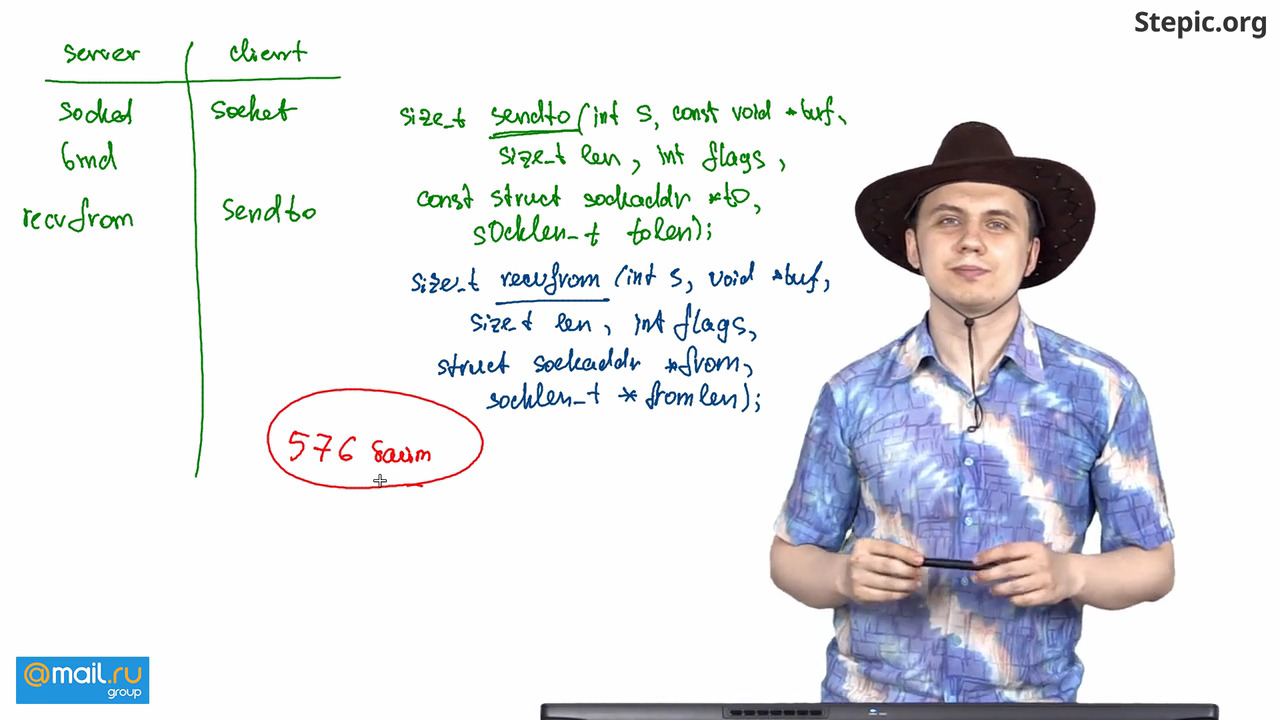 Stepic.org
server client
socket socket
bind
recvfrom sendto
size_t sendto (int s, const void *buf,
size_t len, int flags,
const struct sockaddr *to,
socklen_t tolen);
size_t recvfrom (int s, void *buf,
size_t len, int flags,
struct sockaddr *from,
socklen_t *fromlen);
576 байт
@mail.ru
group